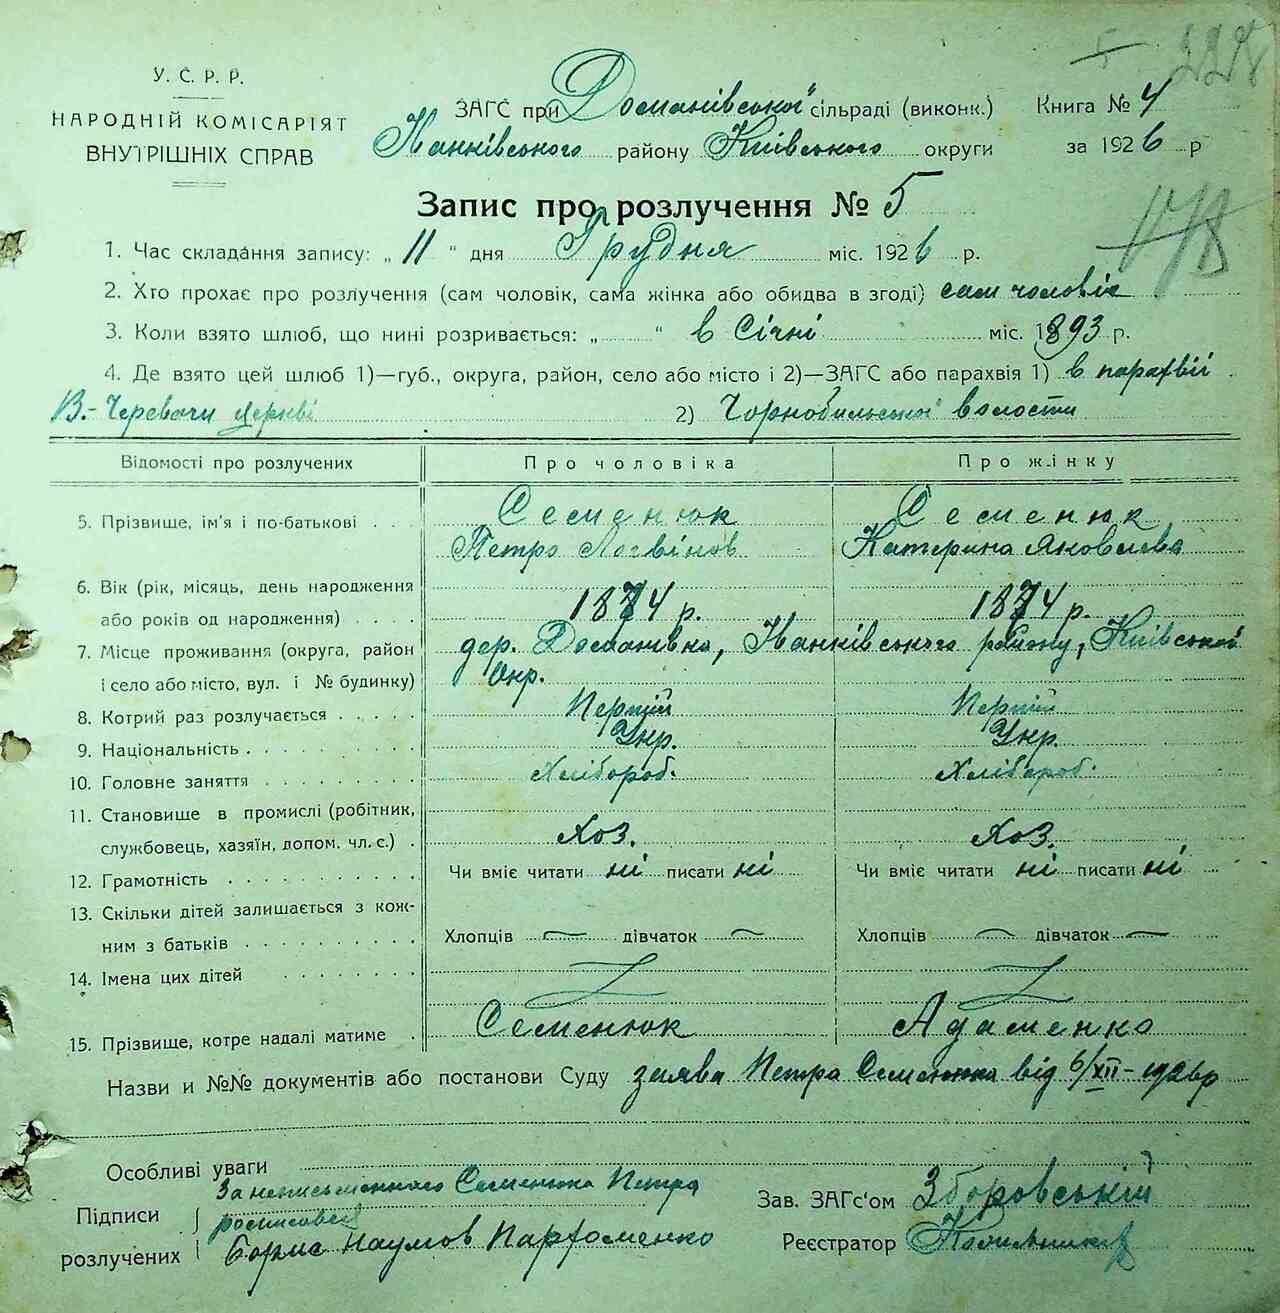 228
У. С. Р. Р.
НАРОДНІЙ КОМІСАРІЯТ
ВНУТРІШНІХ СПРАВ
ЗАГС при Доманівської сільраді (виконк.)
Іванківського району Київського округи
Книга № 4
за 1926 р
178
Запис про розлучення № 5
1. Час складання запису: „ 11 “ дня Грудня міс. 1926 р.
2. Хто прохає про розлучення (сам чоловік, сама жінка або обидва в згоді) сам чоловік
3. Коли взято шлюб, що нині розривається: „ “ в Січні міс. 1893 р.
4. Де взято цей шлюб 1)—губ., округа, район, село або місто і 2)—ЗАГС або парахвія 1) в парафвії
В.-Черевачи церкві 2) Чорнобильської волости
Відомості про розлучених Про чоловіка Про жінку
5. Прізвище, ім'я і по-батькові Семенюк Семенюк
Петро Логвінов Катерина Яковлева
6. Вік (рік, місяць, день народження
або років од народження) 1874 р. 1874 р.
7. Місце проживання (округа, район дер. Доманівка, Іванківського району, Київської
і село або місто, вул. і № будинку) Окр.
8. Котрий раз розлучається Перший Перший
9. Національність Укр. Укр.
10. Головне заняття Хлібороб. Хлібороб.
11. Становище в промислі (робітник,
службовець, хазяїн, допом. чл. с.) Хоз. Хоз.
12. Грамотність Чи вміє читати ні писати ні Чи вміє читати ні писати ні
13. Скільки дітей залишається з кож-
ним з батьків Хлопців — дівчаток — Хлопців — дівчаток —
14. Імена цих дітей
15. Прізвище, котре надалі матиме Семенюк Адаменко
Назви и №№ документів або постанови Суду заява Петра Семенюка від 6/XII-1926р
Особливі уваги
За неписьменного Семенюка Петра
Підписи росписався
розлучених Борис Наумов Пархоменко
Зав. ЗАГс'ом Зборовський
Реєстратор